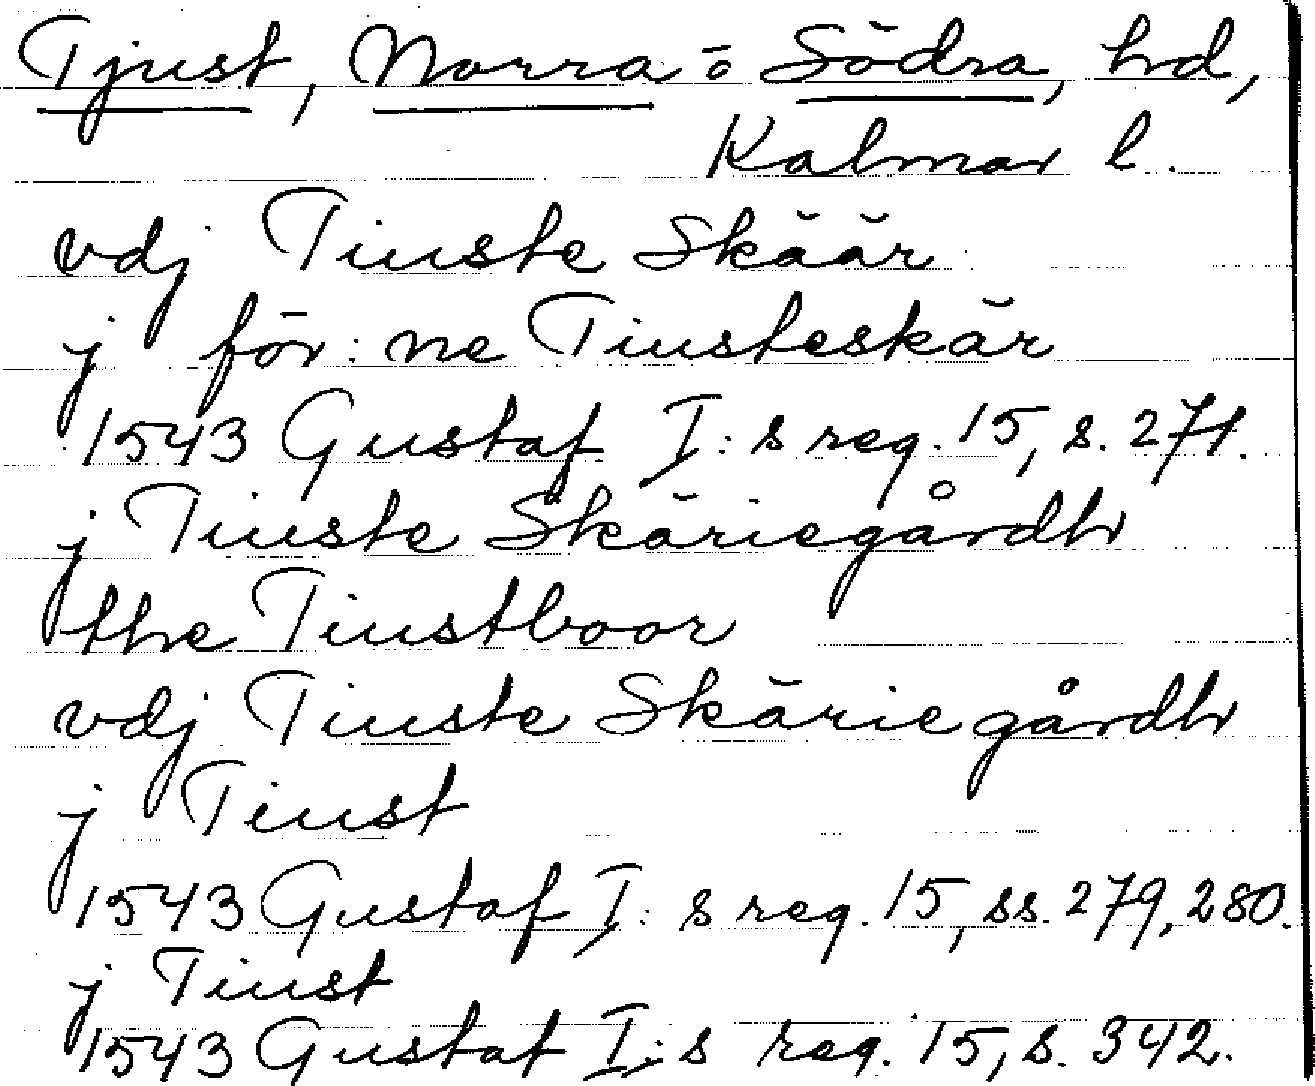 Tjust, Norra o Södra, hd,
Kalmar l.
vdj Tiuste Skäär
j för:ne Tiusteskär
1543 Gustaf I:s reg. 15, s. 271.
j Tiuste Skäriegårdh
the Tiustboor
vdj Tiuste Skärie gårdh
j Tiust
1543 Gustaf I:s reg. 15, ss. 279, 280.
j Tiust
1543 Gustaf I:s reg. 15, s. 342.